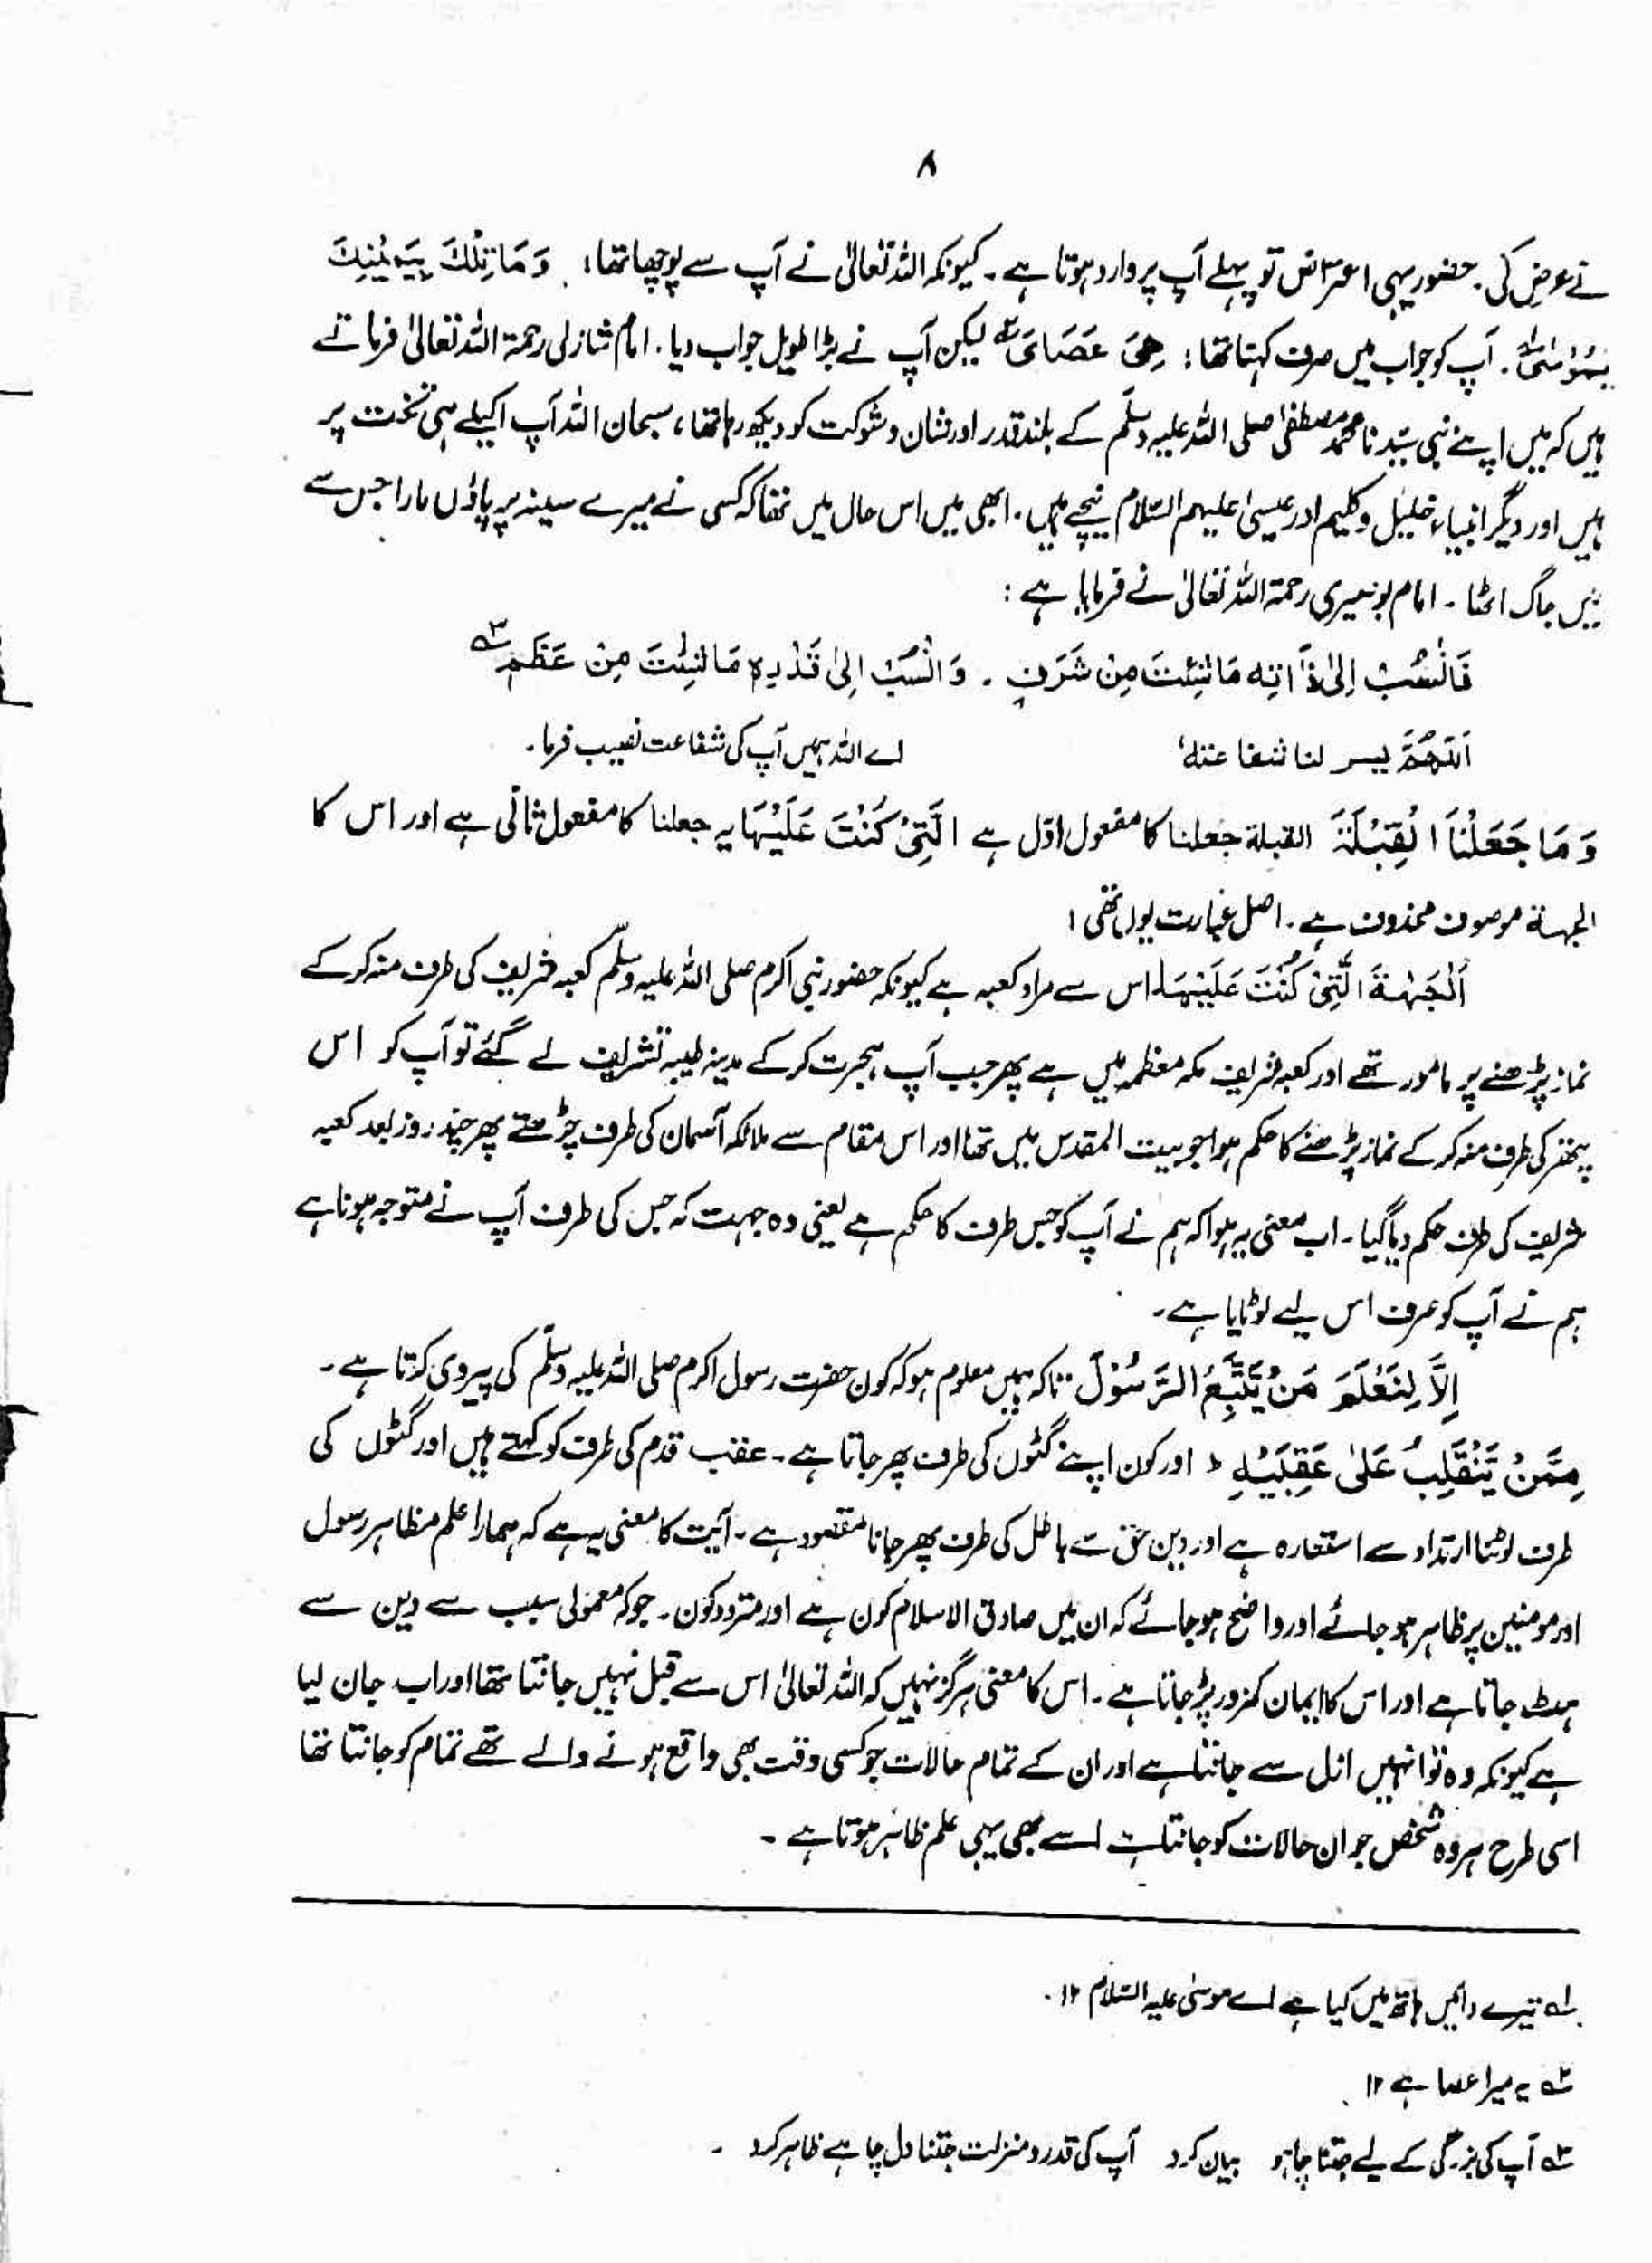 ۸
نے عرض کی . حضور یہی اعتراض تو پہلے آپ پر وارد ہوتا ہے ۔ کیونکہ اللہ تعالیٰ نے آپ سے پوچھا تھا : وَمَا تِلْكَ بِيَمِيْنِكَ
يٰمُوْسٰى لہ . آپ کو جواب میں صرف کہنا تھا : هِىَ عَصَاىَ ۲ لیکن آپ نے بڑا طویل جواب دیا . امام شازلی رحمۃ اللہ تعالیٰ فرماتے
ہیں کہ میں اپنے نبی سیّدنا محمد مصطفیٰ صلی اللہ علیہ وسلّم کے بلند قدر اور شان و شوکت کو دیکھ رہا تھا ، سبحان اللہ آپ اکیلے ہی تخت پر
ہیں اور دیگر انبیاء خلیل و کلیم اور عیسیٰ علیہم السّلام نیچے ہیں . ابھی میں اس حال میں تھا کہ کسی نے میرے سینہ پر پاؤں مارا جس سے
میں جاگ اٹھا ۔ امام بوصیری رحمۃ اللہ تعالیٰ نے فرمایا ہے :
فَانْسُبْ اِلٰى ذَاتِهٖ مَا شِئْتَ مِنْ شَرَفٍ . وَانْسُبْ اِلىٰ قَدْرِهٖ مَا شِئْتَ مِنْ عَظَمٍ ۳
اَللّٰهُمَّ يسر لنا شفاعتهٗ اے اللہ ہمیں آپ کی شفاعت نصیب فرما .
وَمَا جَعَلْنَا الْقِبْلَةَ القبلة جعلنا کا مفعول اوّل ہے الَّتِىْ كُنْتَ عَلَيْهَا یہ جعلنا کا مفعول ثانی ہے اور اس کا
الجهة موصوف محذوف ہے . اصل عبارت یوں تھی :
اَلْجِهَةَ الَّتِىْ كُنْتَ عَلَيْهَا اس سے مراد کعبہ ہے کیونکہ حضور نبی اکرم صلی اللہ علیہ وسلّم کعبہ شریف کی طرف منہ کر کے
نماز پڑھنے پر مامور تھے اور کعبہ شریف مکہ معظمہ میں ہے پھر جب آپ ہجرت کر کے مدینہ طیبہ تشریف لے گئے تو آپ کو اس
پتھر کی طرف منہ کر کے نماز پڑھنے کا حکم ہوا جو بیت المقدس میں تھا اور اس مقام سے ملائکہ آسمان کی طرف چڑھتے پھر چند روز بعد کعبہ
شریف کی طرف حکم دیا گیا ۔ اب معنی یہ ہوا کہ ہم نے آپ کو جس طرف کا حکم ہے یعنی وہ جہت کہ جس کی طرف آپ نے متوجہ ہونا ہے
ہم نے آپ کو صرف اس لیے لوٹایا ہے ۔
اِلَّا لِنَعْلَمَ مَنْ يَّتَّبِعُ الرَّسُوْلَ تاکہ ہمیں معلوم ہو کہ کون حضرت رسول اکرم صلی اللہ علیہ وسلّم کی پیروی کرتا ہے ۔
مِمَّنْ يَّنْقَلِبُ عَلٰى عَقِبَيْهِ ط اور کون اپنے گٹوں کی طرف پھر جاتا ہے ۔ عقب قدم کی طرف کو کہتے ہیں اور گٹوں کی
طرف لوٹنا ارتداد سے استعارہ ہے اور دین حق سے باطل کی طرف پھر جانا مقصود ہے ۔ آیت کا معنی یہ ہے کہ ہمارا علم مظاہر رسول
اور مومنین پر ظاہر ہو جائے اور واضح ہو جائے کہ ان میں صادق الاسلام کون ہے اور متردد کون ۔ جو کہ معمولی سبب سے دین سے
ہٹ جاتا ہے اور اس کا ایمان کمزور پڑ جاتا ہے . اس کا معنی ہرگز نہیں کہ اللہ تعالیٰ اس سے قبل نہیں جانتا تھا اور اب جان لیا
ہے کیونکہ وہ تو انہیں ازل سے جانتا ہے اور ان کے تمام حالات جو کسی وقت بھی واقع ہونے والے تھے تمام کو جانتا تھا
اسی طرح ہر وہ شخص جو ان حالات کو جانتا ہے اسے بھی یہی علم ظاہر ہوتا ہے ۔
لہ تیرے دائیں ہاتھ میں کیا ہے اے موسیٰ علیہ السّلام ۱۲ .
۲ یہ میرا عصا ہے ۱۲
۳ آپ کی بزرگی کے لیے جتنا چاہو بیان کرو آپ کی قدر و منزلت جتنا دل چاہے ظاہر کرو ۔